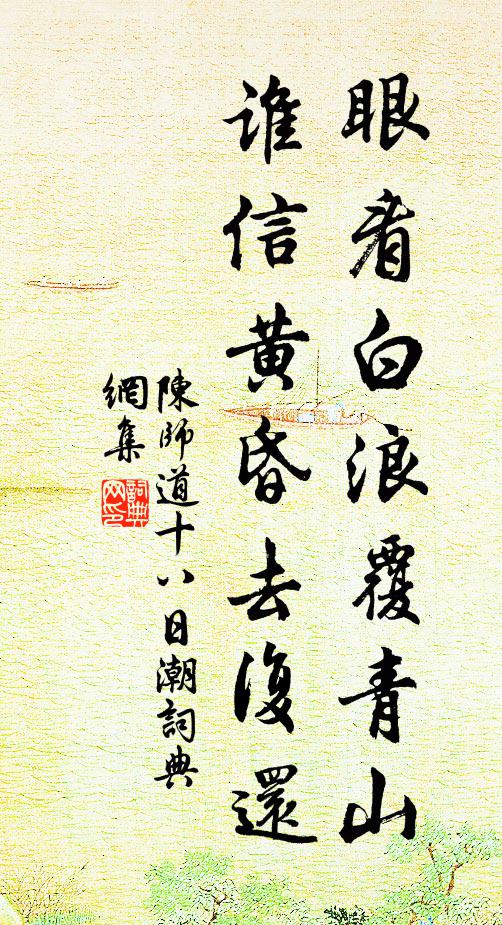 眼看白浪覆青山
谁信黄昏去復還
陳師道十八日潮詞典
網集
詞典网印